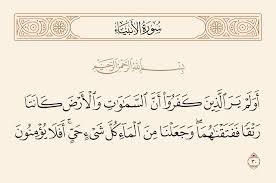 سُورَةُ الأَنبِيَاءِ
بِسْمِ اللَّهِ الرَّحْمَٰنِ الرَّحِيمِ
أَوَلَمْ يَرَ الَّذِينَ كَفَرُوا أَنَّ السَّمَاوَاتِ وَالْأَرْضَ كَانَتَا
رَتْقًا فَفَتَقْنَاهُمَا وَجَعَلْنَا مِنَ الْمَاءِ كُلَّ شَيْءٍ حَيٍّ أَفَلَا يُؤْمِنُونَ
٣٠